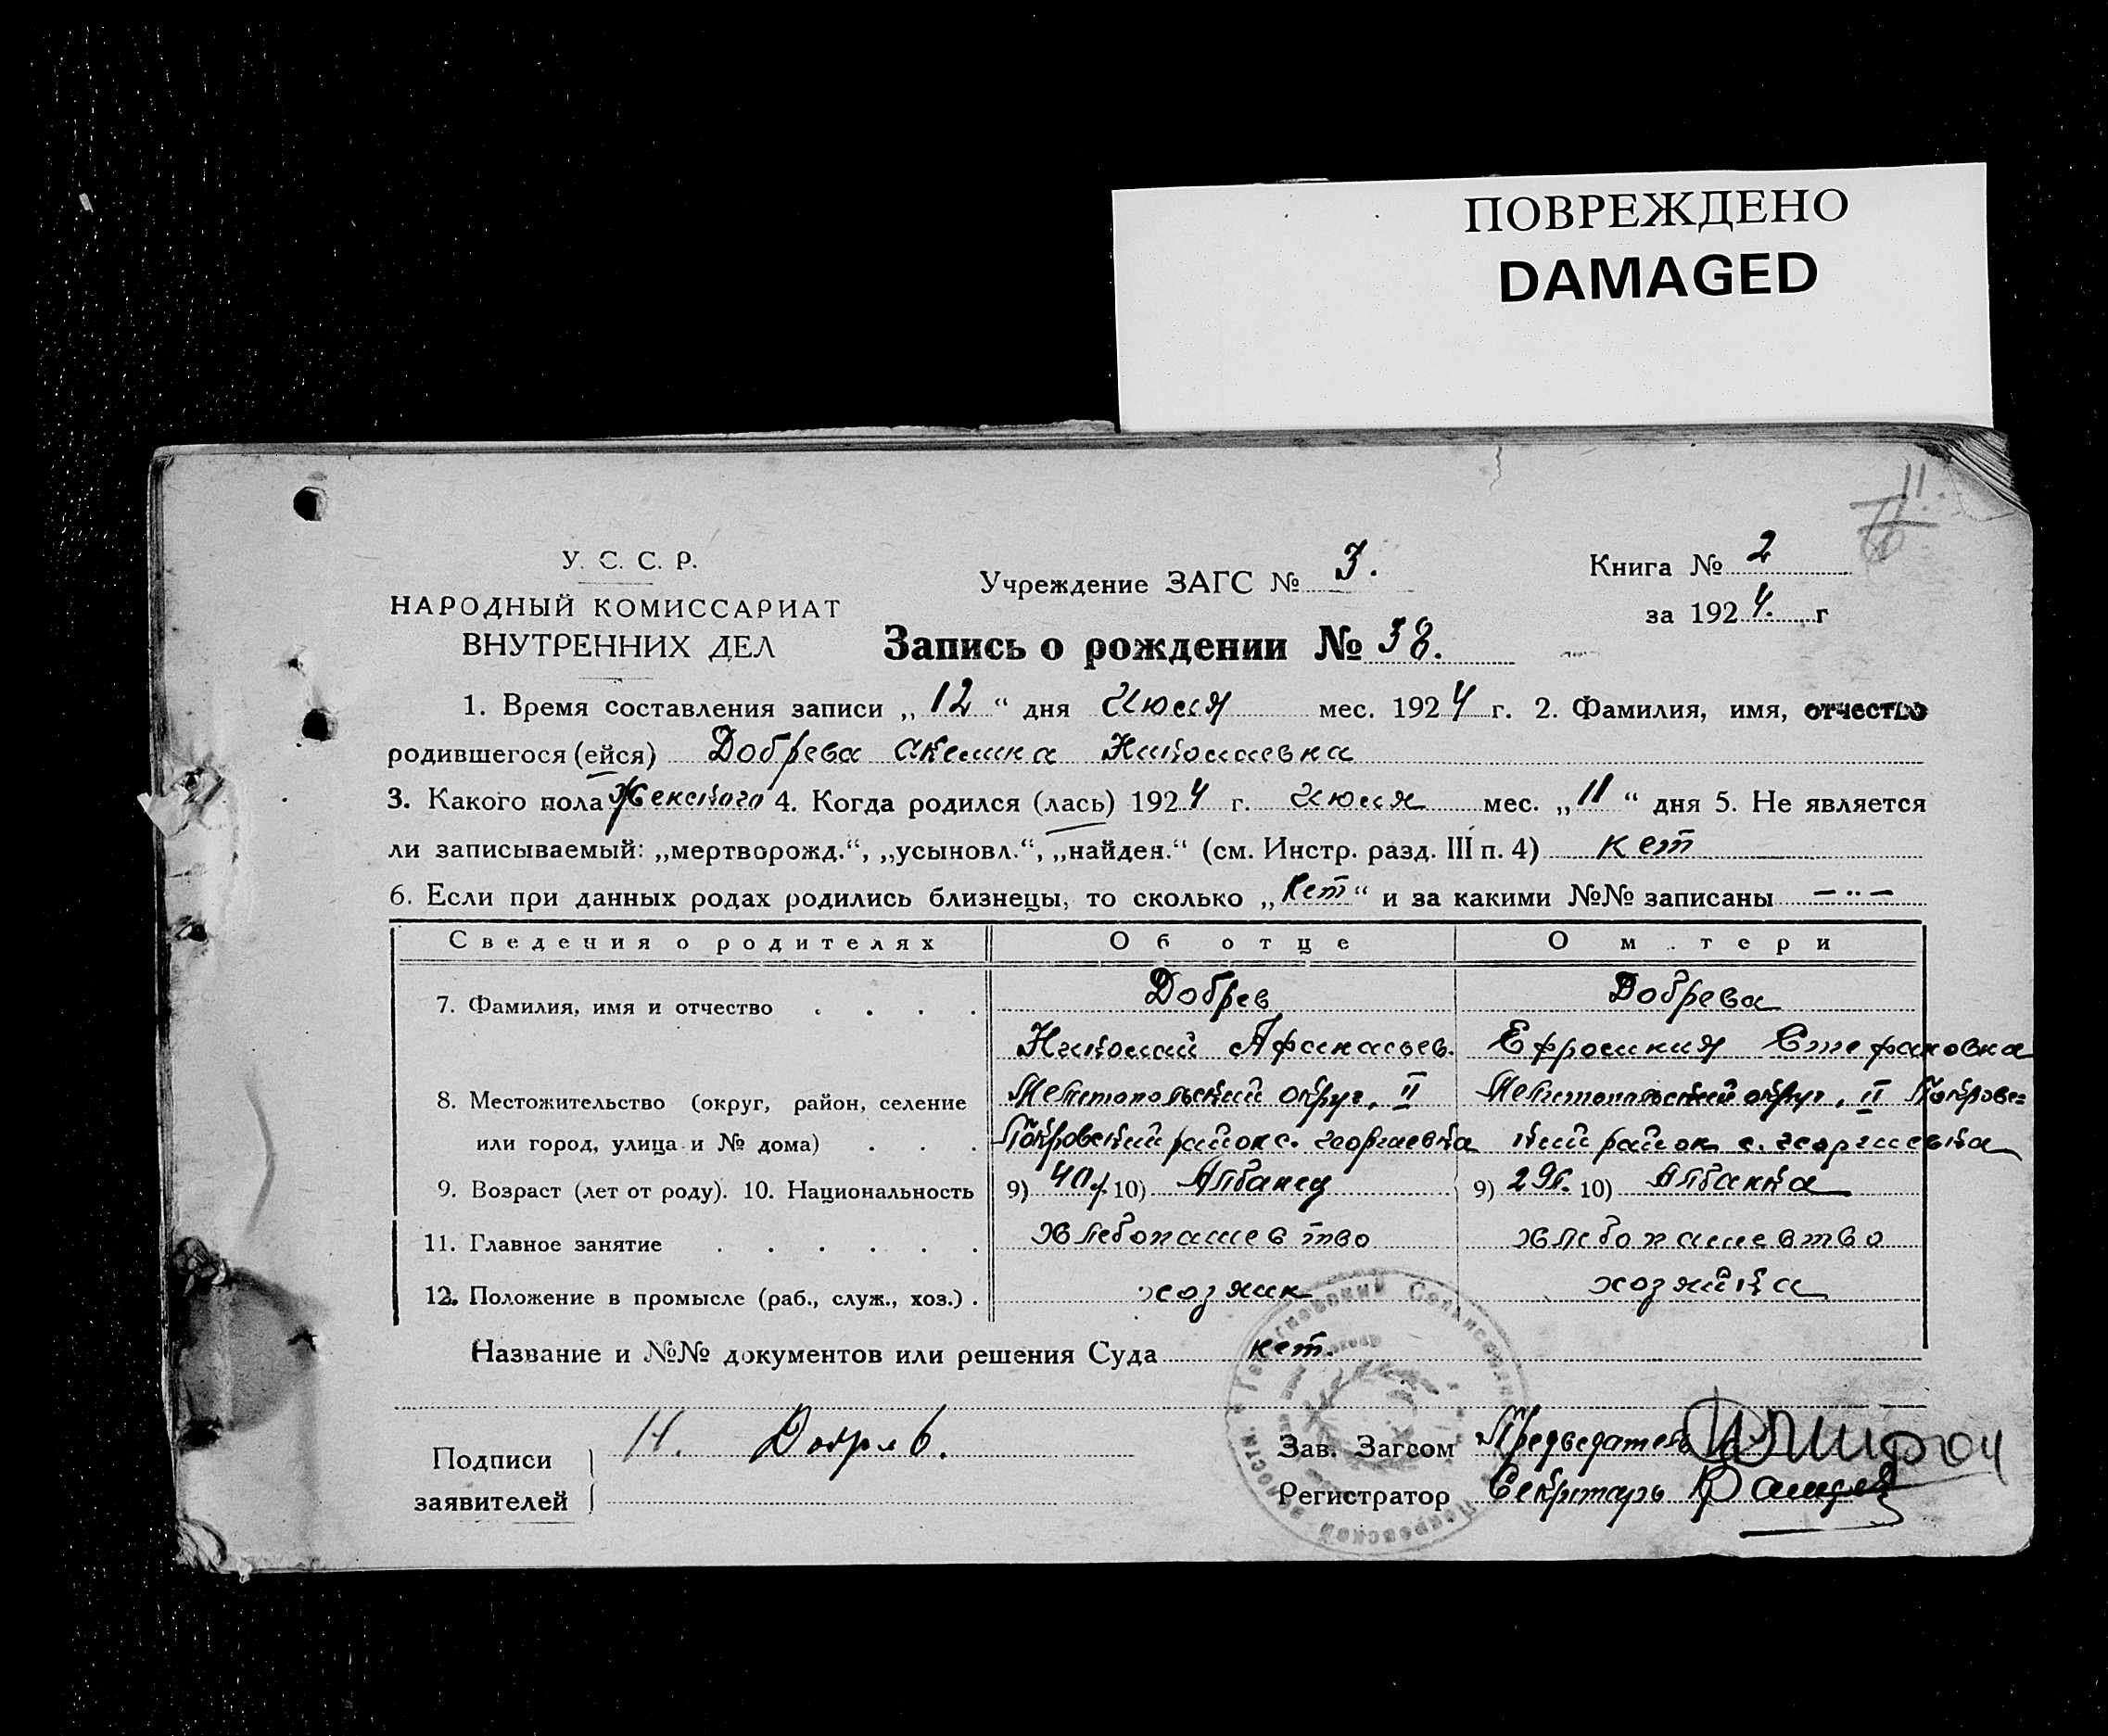 ПОВРЕЖДЕНО
DAMAGED
У. С. С. Р.
НАРОДНЫЙ КОМИССАРИАТ
ВНУТРЕННИХ ДЕЛ
Учреждение ЗАГС № 3.
Книга № 2
за 1924. г
Запись о рождении № 38.
1. Время составления записи „12“ дня Июля мес. 1924 г. 2. Фамилия, имя, отчество
родившегося (ейся) Добрева Акелина Николаевна
3. Какого пола Женского 4. Когда родился (лась) 1924 г. Июля мес. „11“ дня 5. Не является
ли записываемый: „мертворожд.“, „усыновл.“, „найден.“ (см. Инстр. разд. III п. 4) нет
6. Если при данных родах родились близнецы, то сколько „нет“ и за какими №№ записаны —"—
Сведения о родителях Об отце О м тери
7. Фамилия, имя и отчество . . . . Добрев Добрева
Николай Афанасьев. Ефросиния Стефановна
8. Местожительство (округ, район, селение Мелитопольский округ, II Мелитопольский округ, II Покровс=
или город, улица и № дома) . . . Покровский район с. Георгиевка кий район с. Георгиевка
9. Возраст (лет от роду). 10. Национальность 9) 40л. 10) Албанец 9) 29л. 10) Албанка
11. Главное занятие . . . . . . Хлебопашевтво хлебопашевтво
12. Положение в промысле (раб., служ., хоз.) . хозяин хозяйка
Название и №№ документов или решения Суда нет.
Подписи
заявителей
Н. Добрев.
Зав. Загсом Председатель
Регистратор Секретарь
Георгиевский Сельисполком
Покровской волости,